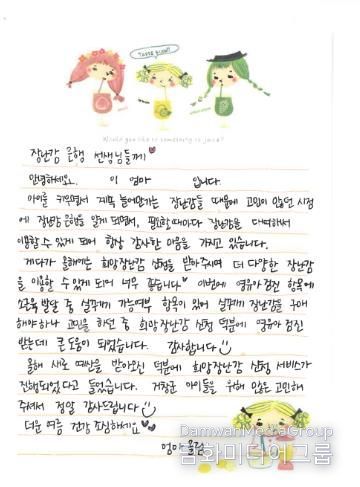 Taste good!
Would you like to something to juice?
장난감 은행 선생님들께♥
안녕하세요. 이 엄마 입니다.
아이를 키우면서 계속 늘어만가는 장난감들 때문에 고민이 많던 시점
에 장난감 은행을 알게 되면서, 필요할때마다 장난감을 대여하서
이용할 수 있게 되어 항상 감사한 마음을 가지고 있습니다.
게다가 올해에는 희망장난감 신청을 받아주시며 더 다양한 장난감
을 이용할 수 있게 되어 너무 좋습니다! 이번에 영유아 검진 항목에
소근육 발달 중 실꿰기 가능여부 항목이 있어 실꿰기 장난감을 구매
해야하나 고민을 하던 중 희망장난감 신청 덕분에 영유아 검진
받는데 큰 도움이 되었습니다. 감사합니다
올해 새로 예산을 받아오신 덕분에 희망장난감 신청 서비스가
진행되었다고 들었습니다. 거창군 아이들을 위해 많은 고민해
주셔서 정말 감사드립니다
더운 여름 건강 조심하세요♥
엄마 올림
DamwanMediaGroup
담화미디어그룹